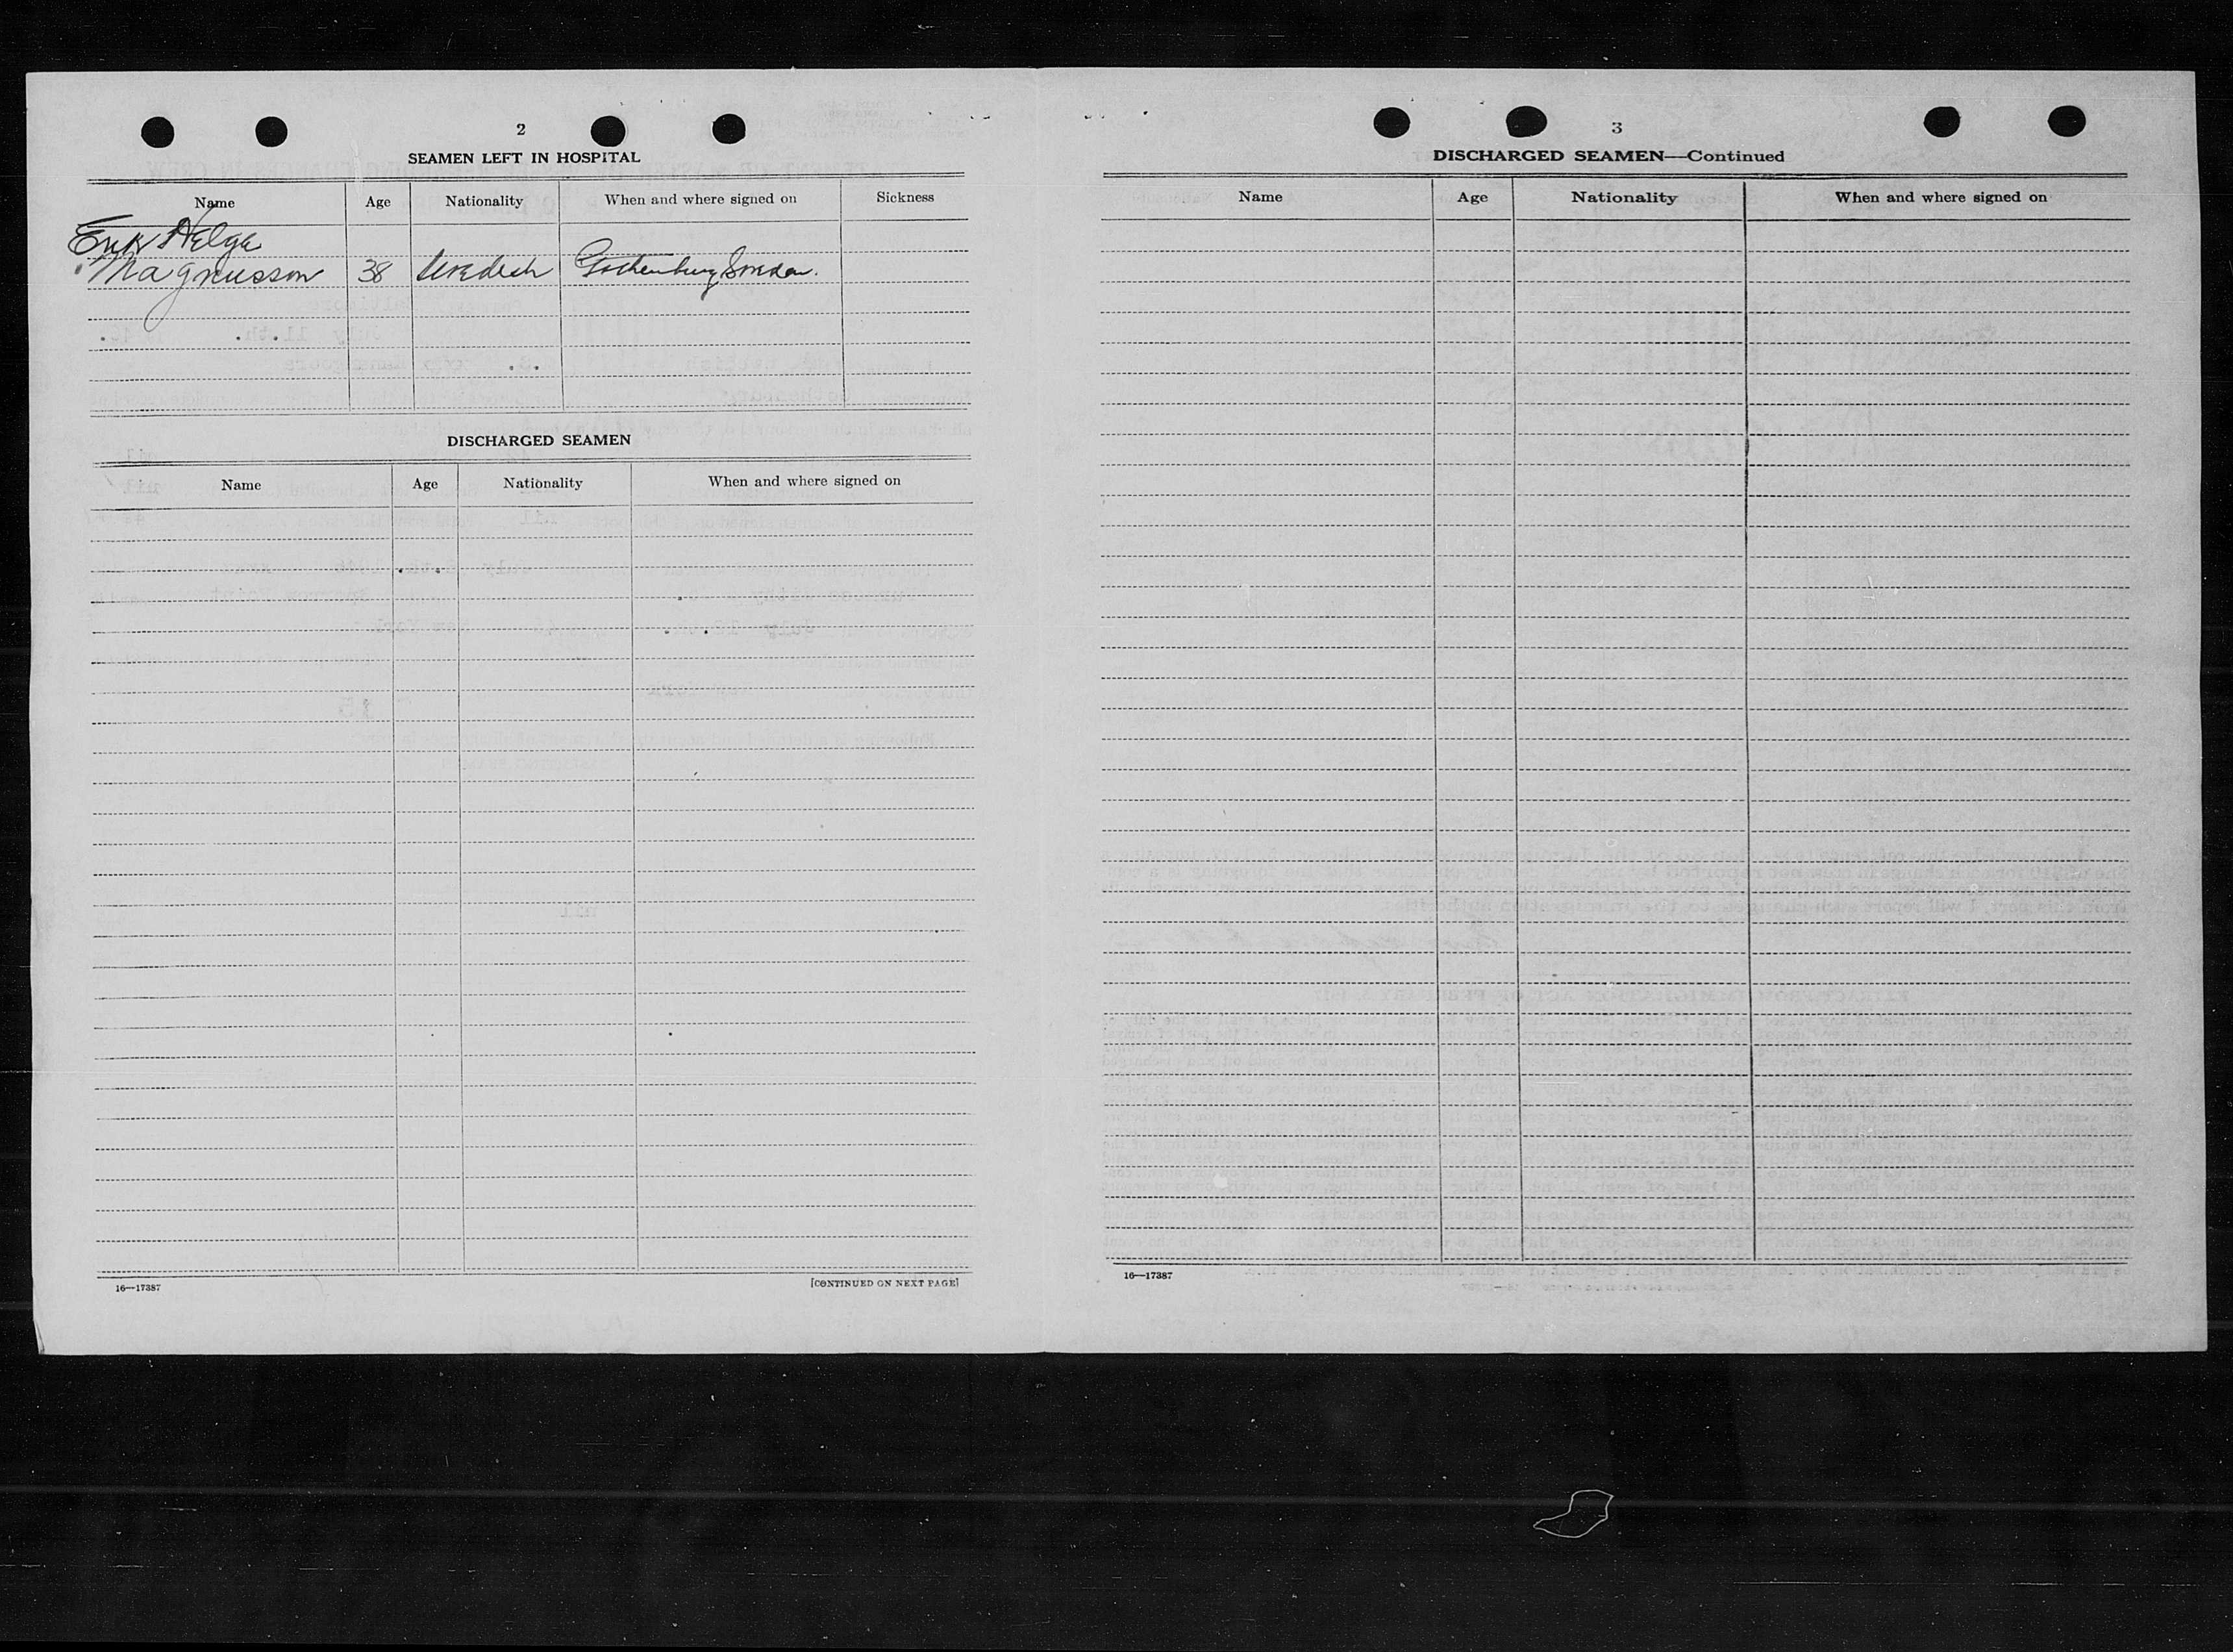 2
SEAMEN LEFT IN HOSPITAL
Name Age Nationality When and where signed on Sickness
Erik Helge
Magnusson 38 Swedish Gothenburg Sweden.
DISCHARGED SEAMEN
Name Age Nationality When and where signed on
16—17387 [CONTINUED ON NEXT PAGE]
3
DISCHARGED SEAMEN—Continued
Name Age Nationality When and where signed on
16—17387